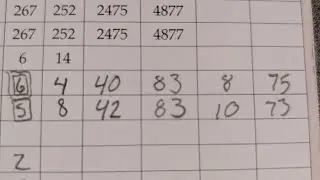 267 252 2475 4877
267 252 2475 4877
6 14
6 4 40 83 8 75
5 8 42 83 10 73
2